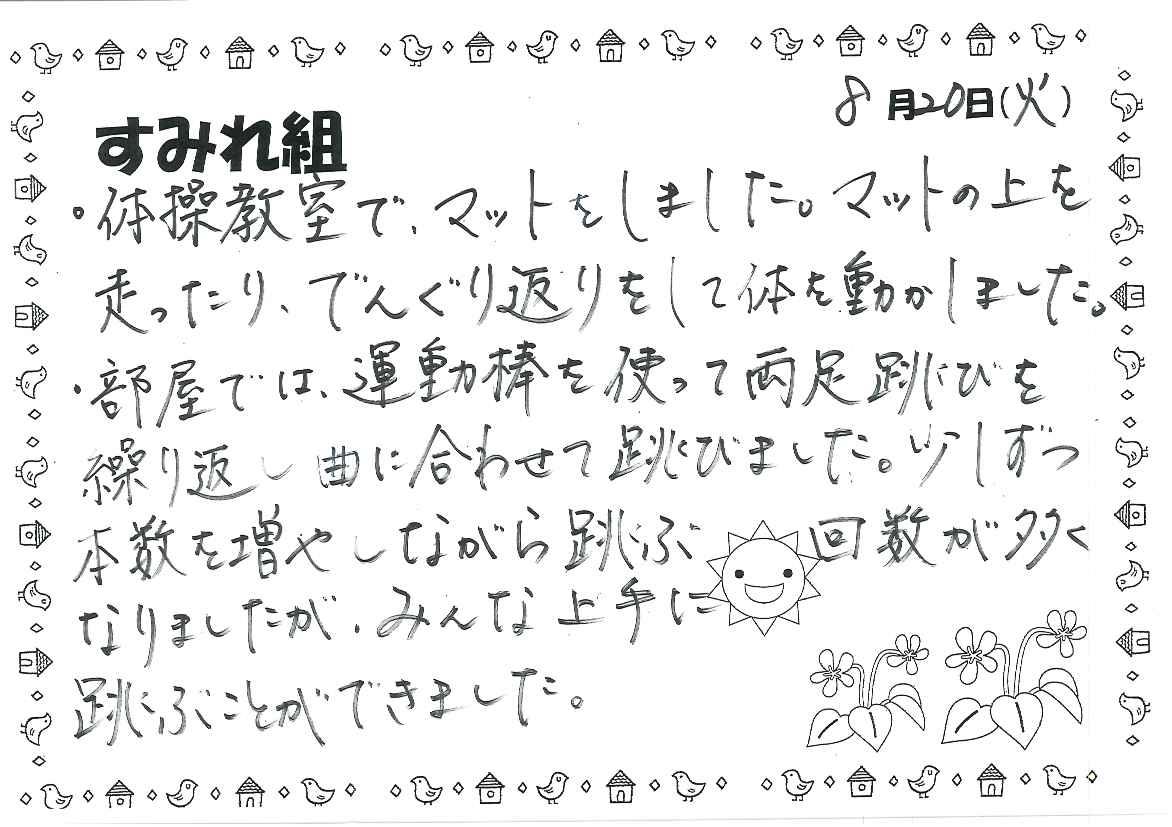 8月20日(火)
すみれ組
・体操教室で、マットをしました。マットの上を
走ったり、でんぐり返りをして体を動かしました。
・部屋では、運動棒を使って両足跳びを
繰り返し曲に合わせて跳びました。少しずつ
本数を増やしながら跳ぶ回数が多く
なりましたが、みんな上手に
跳ぶことができました。